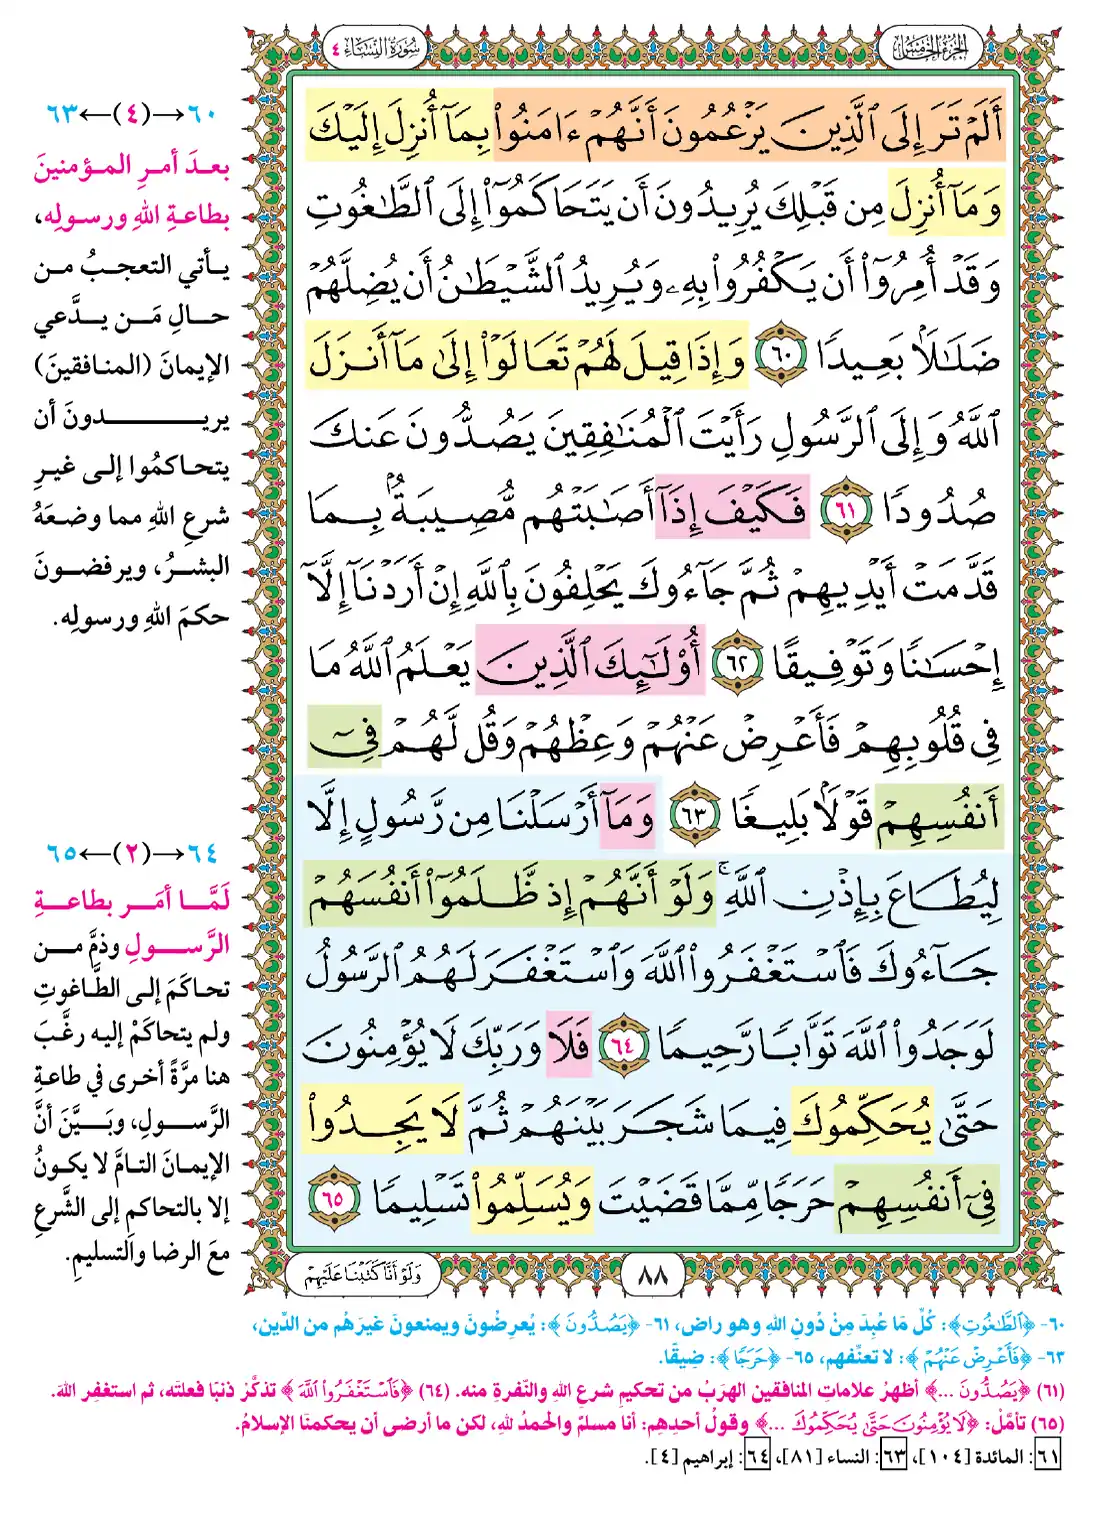 الجزء الخامس
سورة النساء ٤
أَلَمْ تَرَ إِلَى ٱلَّذِينَ يَزْعُمُونَ أَنَّهُمْ ءَامَنُوا۟ بِمَآ أُنزِلَ إِلَيْكَ
وَمَآ أُنزِلَ مِن قَبْلِكَ يُرِيدُونَ أَن يَتَحَاكَمُوٓا۟ إِلَى ٱلطَّـٰغُوتِ
وَقَدْ أُمِرُوٓا۟ أَن يَكْفُرُوا۟ بِهِۦ وَيُرِيدُ ٱلشَّيْطَـٰنُ أَن يُضِلَّهُمْ
ضَلَـٰلًۢا بَعِيدًا ٦٠ وَإِذَا قِيلَ لَهُمْ تَعَالَوْا۟ إِلَىٰ مَآ أَنزَلَ
ٱللَّهُ وَإِلَى ٱلرَّسُولِ رَأَيْتَ ٱلْمُنَـٰفِقِينَ يَصُدُّونَ عَنكَ
صُدُودًا ٦١ فَكَيْفَ إِذَآ أَصَـٰبَتْهُم مُّصِيبَةٌۢ بِمَا
قَدَّمَتْ أَيْدِيهِمْ ثُمَّ جَآءُوكَ يَحْلِفُونَ بِٱللَّهِ إِنْ أَرَدْنَآ إِلَّآ
إِحْسَـٰنًا وَتَوْفِيقًا ٦٢ أُو۟لَـٰٓئِكَ ٱلَّذِينَ يَعْلَمُ ٱللَّهُ مَا
فِى قُلُوبِهِمْ فَأَعْرِضْ عَنْهُمْ وَعِظْهُمْ وَقُل لَّهُمْ فِىٓ
أَنفُسِهِمْ قَوْلًۢا بَلِيغًا ٦٣ وَمَآ أَرْسَلْنَا مِن رَّسُولٍ إِلَّا
لِيُطَاعَ بِإِذْنِ ٱللَّهِ ۚ وَلَوْ أَنَّهُمْ إِذ ظَّلَمُوٓا۟ أَنفُسَهُمْ
جَآءُوكَ فَٱسْتَغْفَرُوا۟ ٱللَّهَ وَٱسْتَغْفَرَ لَهُمُ ٱلرَّسُولُ
لَوَجَدُوا۟ ٱللَّهَ تَوَّابًا رَّحِيمًا ٦٤ فَلَا وَرَبِّكَ لَا يُؤْمِنُونَ
حَتَّىٰ يُحَكِّمُوكَ فِيمَا شَجَرَ بَيْنَهُمْ ثُمَّ لَا يَجِدُوا۟
فِىٓ أَنفُسِهِمْ حَرَجًا مِّمَّا قَضَيْتَ وَيُسَلِّمُوا۟ تَسْلِيمًا ٦٥
٨٨
وَلَوْ أَنَّا كَتَبْنَا عَلَيْهِمْ
٦٠→(٤)←٦٣
بعدَ أمرِ المؤمنينَ
بطاعةِ اللهِ ورسولِه،
يأتي التعجبُ من
حالِ مَن يدَّعي
الإيمانَ (المنافقينَ)
يريدونَ أن
يتحاكمُوا إلى غيرِ
شرعِ اللهِ مما وضعَهُ
البشرُ، ويرفضونَ
حكمَ اللهِ ورسولِه.
٦٤→(٢)←٦٥
لَمَّا أمَر بطاعةِ
الرَّسولِ وذمَّ من
تحاكمَ إلى الطَّاغوتِ
ولم يتحاكمْ إليه رغَّبَ
هنا مرَّةً أخرى في طاعةِ
الرَّسولِ، وبَيَّنَ أنَّ
الإيمانَ التامَّ لا يكونُ
إلا بالتحاكمِ إلى الشَّرعِ
معَ الرضا والتسليمِ.
٦٠- ﴿ٱلطَّـٰغُوتِ﴾: كُلِّ مَا عُبِدَ مِنْ دُونِ اللهِ وهو راضٍ، ٦١- ﴿يَصُدُّونَ﴾: يُعرِضُونَ ويمنعونَ غَيرَهُم من الدِّينِ،
٦٣- ﴿فَأَعْرِضْ عَنْهُمْ﴾: لا تعنِّفهم، ٦٥- ﴿حَرَجًا﴾: ضِيقًا.
(٦١) ﴿يَصُدُّونَ ...﴾ أظهرُ علاماتِ المنافقين الهرَبُ من تحكيمِ شرعِ اللهِ والنَّفرةِ منه. (٦٤) ﴿فَٱسْتَغْفَرُوا۟ ٱللَّهَ﴾ تذكَّرْ ذنبًا فعلتَه، ثم استغفِر اللهَ.
(٦٥) تأمَّل: ﴿لَا يُؤْمِنُونَ حَتَّىٰ يُحَكِّمُوكَ ...﴾ وقولُ أحدِهِم: أنا مسلمٌ والحمدُ للهِ، لكن ما أرضى أن يحكمنَا الإسلامُ.
٦١: المائدة [١٠٤]، ٦٣: النساء [٨١]، ٦٤: إبراهيم [٤].